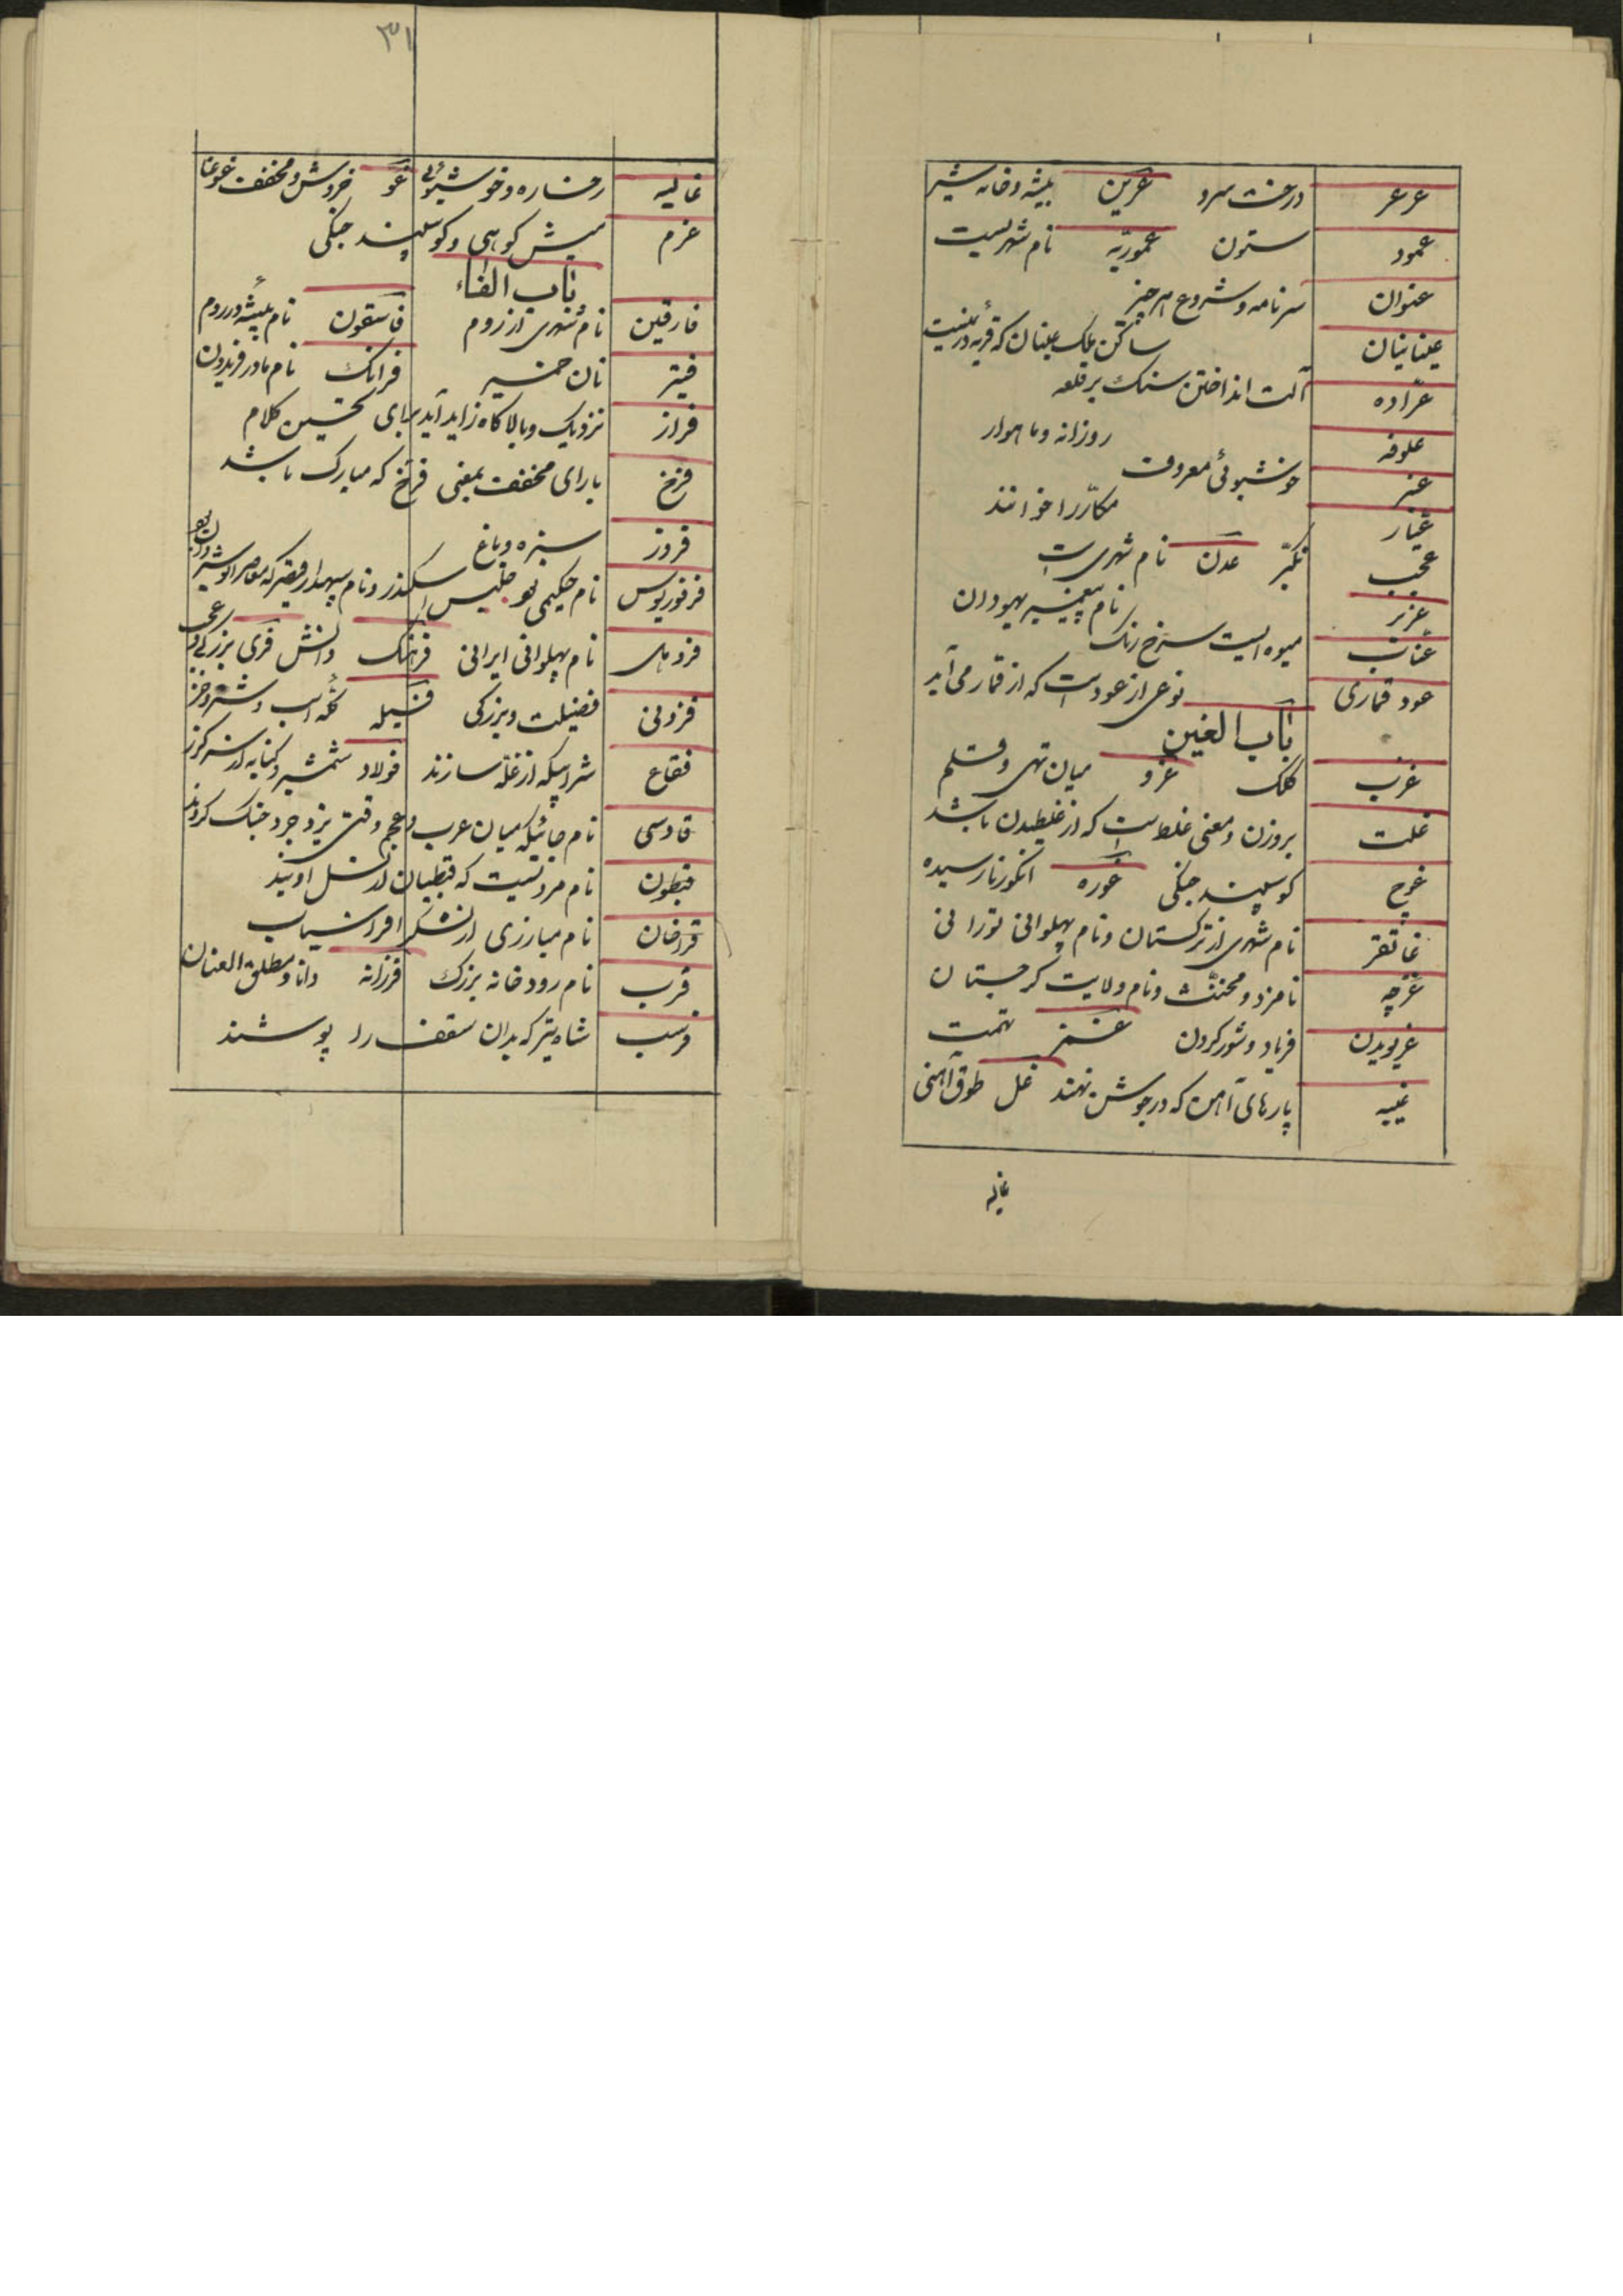 عرعر درخت سرو عرین بیشه و خانه شیر
عمود ستون عموریّه نام شهریست
عنوان سرنامه و شروع هر چیز
عینانیان ساکن ملک عینان که قریه
عرّاده آلت انداختن سنک بر قلعه
علوفه روزانه و ماهوار
عنبر خوشبوئی معروف
عیّار مکاّر را خوانند
عجب تکبّر عدن نام شهری است
عزیر نام پیغمبر یهودان
عنّاب میوه ایست سرخ رنک
عود قماری نوعی از عود است که از قمار می آید
باب الغین
غرب کلک غرو میان تهی و قلم
غلت بروزن و معنی غلط است که از غلطیدن باشد
غوچ کوسپند جنکی غوره انکور نارسیده
غاتفر نام شهری از ترکستان و نام پهلوانی تورانی
غرچه نامزد و مخنّث و نام ولایت کرجستان
غریویدن فریاد و شور کردن تهمت
غیبه پارهای آهن که در جوشن نهند غل طوق آهنی
غالیه
۳۱
غالیه رخساره و خوشبوئی غو خروش و مخفف غوغا
غرم میش کوهی و کوسپند جنکی
باب الفاء
فارقین نام شهری از روم فاسقون نام بیشه در روم
فتیر نان خمیر فرانک نام مادر فریدون
فراز نزدیک و بالا کاه زاید آید برای تحسین کلام
فرخ بارای مخفف بمعنی فرّخ که مبارک باشد
فروز سبزه و باغ
فرفوریوس نام حکیمی جلیس اسکندر و نام سپهدار قیصر که معاصر انوشیروان بود
فرد مای نام پهلوانی ایرانی فرهنک دانش فری بزرکی و
فزونی فضیلت و بزرکی فسیله کله اسب و شتر و خر
فقاع شرابیکه از غلّه سازند فولاد شمشیر و کنایه از سر کرز
قادسی نام جائیکه میان عرب و عجم وقت یزدجرد جنک کردند
قبطون نام مردیست که قبطیان از نسل اویند
قراخان نام مبارزی از لشکر افراسیاب
قرب نام رودخانه بزرک فرزانه دانا و مطلق العنان
فرسب شاه تیر که بدان سقف را پوشند